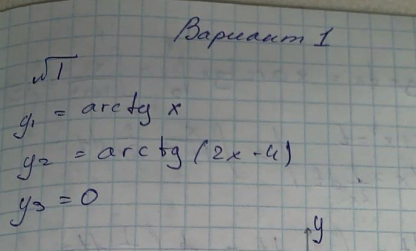 Вариант 1
√1
y₁ = arctg x
y₂ = arctg (2x-4)
y₃ = 0
y